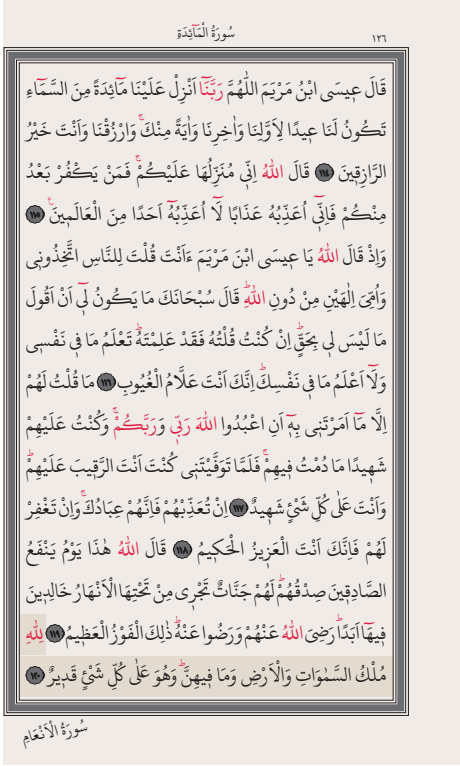 سُورَةُ الْمَآئِدَةِ ١٢٦
قَالَ ع۪يسَى ابْنُ مَرْيَمَ اللّٰهُمَّ رَبَّنَٓا اَنْزِلْ عَلَيْنَا مَٓائِدَةً مِنَ السَّمَٓاءِ
تَكُونُ لَنَا ع۪يدًا لِاَوَّلِنَا وَاٰخِرِنَا وَاٰيَةً مِنْكَۚ وَارْزُقْنَا وَاَنْتَ خَيْرُ
الرَّازِق۪ينَ ﴿١١٤﴾ قَالَ اللّٰهُ اِنّ۪ي مُنَزِّلُهَا عَلَيْكُمْۚ فَمَنْ يَكْفُرْ بَعْدُ
مِنْكُمْ فَاِنّ۪ٓي اُعَذِّبُهُ عَذَابًا لَٓا اُعَذِّبُهُٓ اَحَدًا مِنَ الْعَالَم۪ينَ۟ ﴿١١٥﴾
وَاِذْ قَالَ اللّٰهُ يَا ع۪يسَى ابْنَ مَرْيَمَ ءَاَنْتَ قُلْتَ لِلنَّاسِ اتَّخِذُون۪ي
وَاُمِّيَ اِلٰهَيْنِ مِنْ دُونِ اللّٰهِۜ قَالَ سُبْحَانَكَ مَا يَكُونُ ل۪ٓي اَنْ اَقُولَ
مَا لَيْسَ ل۪ي بِحَقٍّۜ اِنْ كُنْتُ قُلْتُهُ فَقَدْ عَلِمْتَهُۜ تَعْلَمُ مَا ف۪ي نَفْس۪ي
وَلَٓا اَعْلَمُ مَا ف۪ي نَفْسِكَۜ اِنَّكَ اَنْتَ عَلَّامُ الْغُيُوبِ ﴿١١٦﴾ مَا قُلْتُ لَهُمْ
اِلَّا مَٓا اَمَرْتَن۪ي بِه۪ٓ اَنِ اعْبُدُوا اللّٰهَ رَبّ۪ي وَرَبَّكُمْۚ وَكُنْتُ عَلَيْهِمْ
شَه۪يدًا مَا دُمْتُ ف۪يهِمْۚ فَلَمَّا تَوَفَّيْتَن۪ي كُنْتَ اَنْتَ الرَّق۪يبَ عَلَيْهِمْۜ
وَاَنْتَ عَلٰى كُلِّ شَيْءٍ شَه۪يدٌ ﴿١١٧﴾ اِنْ تُعَذِّبْهُمْ فَاِنَّهُمْ عِبَادُكَۚ وَاِنْ تَغْفِرْ
لَهُمْ فَاِنَّكَ اَنْتَ الْعَز۪يزُ الْحَك۪يمُ ﴿١١٨﴾ قَالَ اللّٰهُ هٰذَا يَوْمُ يَنْفَعُ
الصَّادِق۪ينَ صِدْقُهُمْۜ لَهُمْ جَنَّاتٌ تَجْر۪ي مِنْ تَحْتِهَا الْاَنْهَارُ خَالِد۪ينَ
ف۪يهَٓا اَبَدًاۜ رَضِيَ اللّٰهُ عَنْهُمْ وَرَضُوا عَنْهُۜ ذٰلِكَ الْفَوْزُ الْعَظ۪يمُ ﴿١١٩﴾ لِلّٰهِ
مُلْكُ السَّمٰوَاتِ وَالْاَرْضِ وَمَا ف۪يهِنَّۜ وَهُوَ عَلٰى كُلِّ شَيْءٍ قَد۪يرٌ ﴿١٢٠﴾
سُورَةُ الْاَنْعَامِ